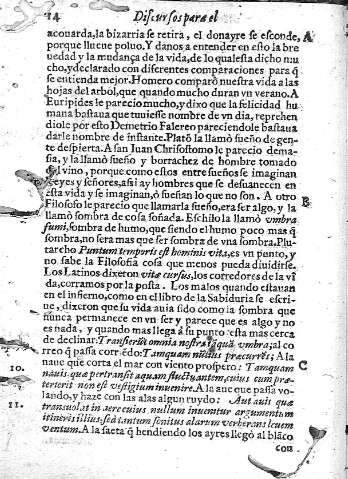 14 Discursos para el
acouarda, la bizarria se retira, el donayre se esconde, A
porque llueue poluo. Y danos a entender en esto la bre
uedad y la mudança de la vida, de lo qual esta dicho mu
cho, y declarado con diferentes comparaciones para q̃
se entienda mejor. Homero comparò nuestra vida a las
hojas del arbol, que quando mucho duran vn verano. A
Euripides le parecio mucho, y dixo que la felicidad hu
mana bastaua que tuuiesse nombre de vn dia, reprehen
diole por esto Demetrio Falereo pareciendole bastaua
darle nombre de instante. Platò la llamò sueño de gen-
te despierta. A san Iuan Chrisostomo le parecio dema-
sia, y la llamò sueño y borrachez de hombre tomado
del vino, porque como estos entre sueños se imaginan
Reyes y señores, assi ay hombres que se desuanecen en
esta vida y se imaginan, ò sueñan lo que no son. A otro B
Filosofo le parecio que llamarla sueño, era ser algo, y la
llamò sombra de cosa soñada. Eschilo la llamò vmbra
fumi, sombra de humo, que siendo el humo poco mas q̃
sombra, no sera mas que ser sombra de vna sombra. Plu-
tarcho Puntum temporis est hominis vita, es vn punto, y
no sabe la Filosofia cosa que menos pueda diuidirse.
Los Latinos dixeron vitæ cursus, los corredores de la vi
da, corramos por la posta. Los malos quando estauan
en el infierno, como en el libro de la Sabiduria se escri-
ue, dixeron que su vida auia sido como la sombra que
nunca permanece en vn ser y parece que es algo y no
es nada, y quando mas llega à su punto esta mas cerca
de declinar: Transierũt omnia nostra tãquã vmbra; al co
rreo q̃ passa corrẽdo: Tamquam nũtius præcurrẽs; A la
10. naue que corta el mar con viento prospero: Tamquam C
nauis quæ pertransit aquam fluctuantem, cuius cum præ-
terierit non est vestigium inuenire. A la aue que passa vo-
11. lando, y haze con las alas algun ruydo: Aut auis quæ
transuolat in aere cuius nullum inuenitur argumentum
itineris illius, sed tantum sonitus alarum verberans leuem
ventum. A la saeta q̃ hendiendo los ayres llegò al blãco
con